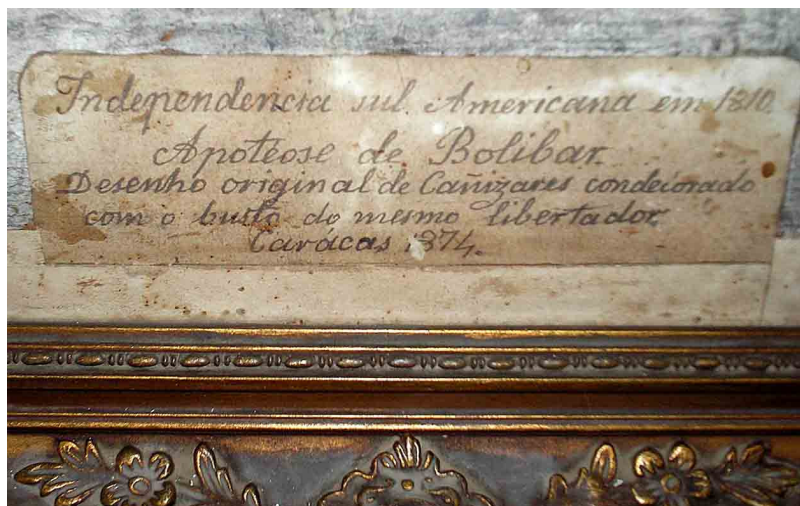 Independencia sul Americana em 1810.
Apoteose de Bolibar.
Desenho original de Cañizares condeiorado
com o busto do mesmo libertador
Carácas 1874.